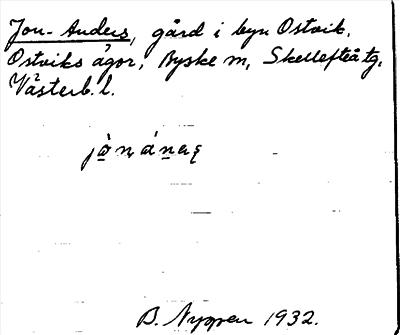 Jon-Anders, gård i byn Ostvik,
Ostviks ägor, Byske sn, Skellefteå tg,
Västerb. l.
B. Nygren 1932.